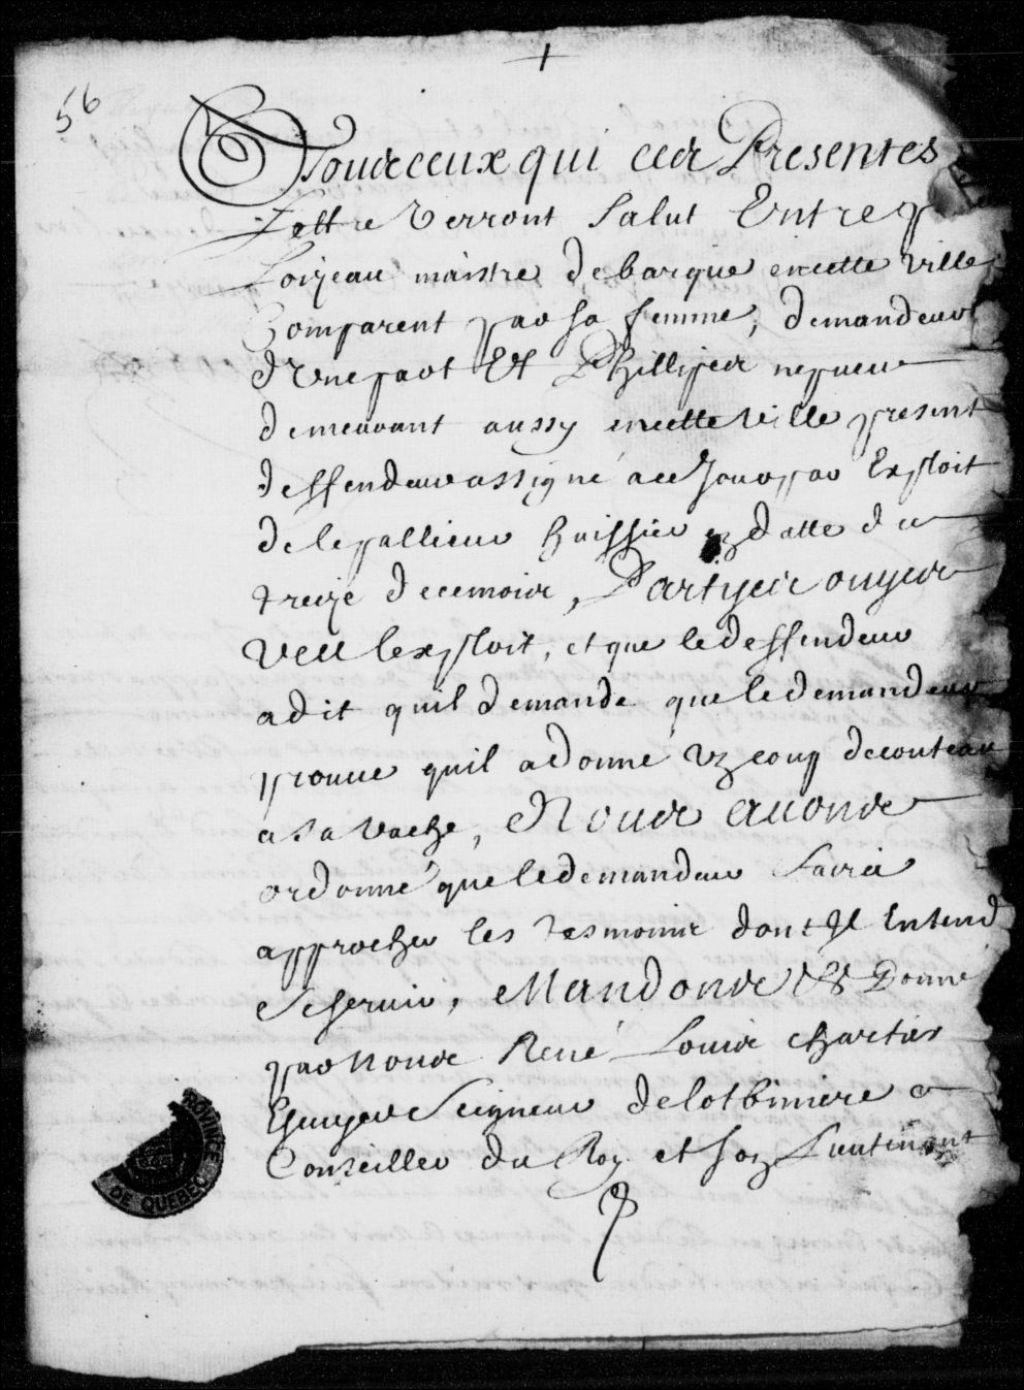 56
A Tous ceux qui ces Presentes
Lettre verront Salut Entre
Loizeau maistre de barque en cette ville
Comparent par sa femme, demandeur
d'Une part Et Phillipes nepueu
demeurant aussy en cette ville present
deffendeur assigné a ce Jour par Exploit
de lepallieur huissier en datte du
treize decembre, Partyes ouyes
veu lexploit, et que le deffendeur
a dit quil demande que le demandeur
prouue quil a donné un coup de couteau
a sa vache, Nous auons
ordonné que le demandeur faira
approcher les tesmoins dont Il Entend
se seruir, Mandons &c Donné
par nous René Louis chartier
Escuyer Seigneur de lotbiniere
Conseiller du Roy et son Lieutenant
PROVINCE
DE QUEBEC